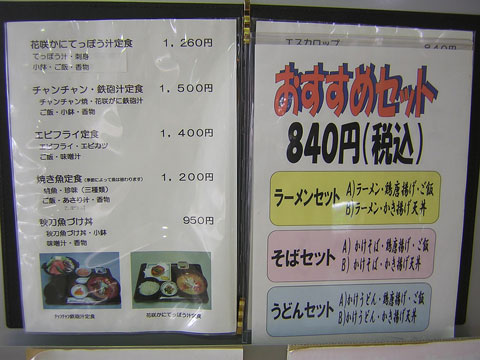 花咲かにてっぽう汁定食 1,260円
てっぽう汁・刺身
小鉢・ご飯・香物
チャンチャン・鉄砲汁定食 1,500円
チャンチャン焼・花咲がに鉄砲汁
ご飯・小鉢・香物
エビフライ定食 1,400円
エビフライ・エビカツ
ご飯・味噌汁
焼き魚定食(季節によって魚は替わります) 1,200円
焼魚・珍味(三種類)
ご飯・あさり汁・香物
秋刀魚づけ丼 950円
秋刀魚づけ丼・小鉢
味噌汁・香物
ﾁｬﾝﾁｬﾝ鉄砲汁定食
花咲かにてっぽう汁定食
エスカロップ 840円
おすすめセット
840円(税込)
ラーメンセット
A)ラーメン・鶏唐揚げ・ご飯
B)ラーメン・かき揚げ天丼
そばセット
A)かけそば・鶏唐揚げ・ご飯
B)かけそば・かき揚げ天丼
うどんセット
A)かけうどん・鶏唐揚げ・ご飯
B)かけうどん・かき揚げ天丼